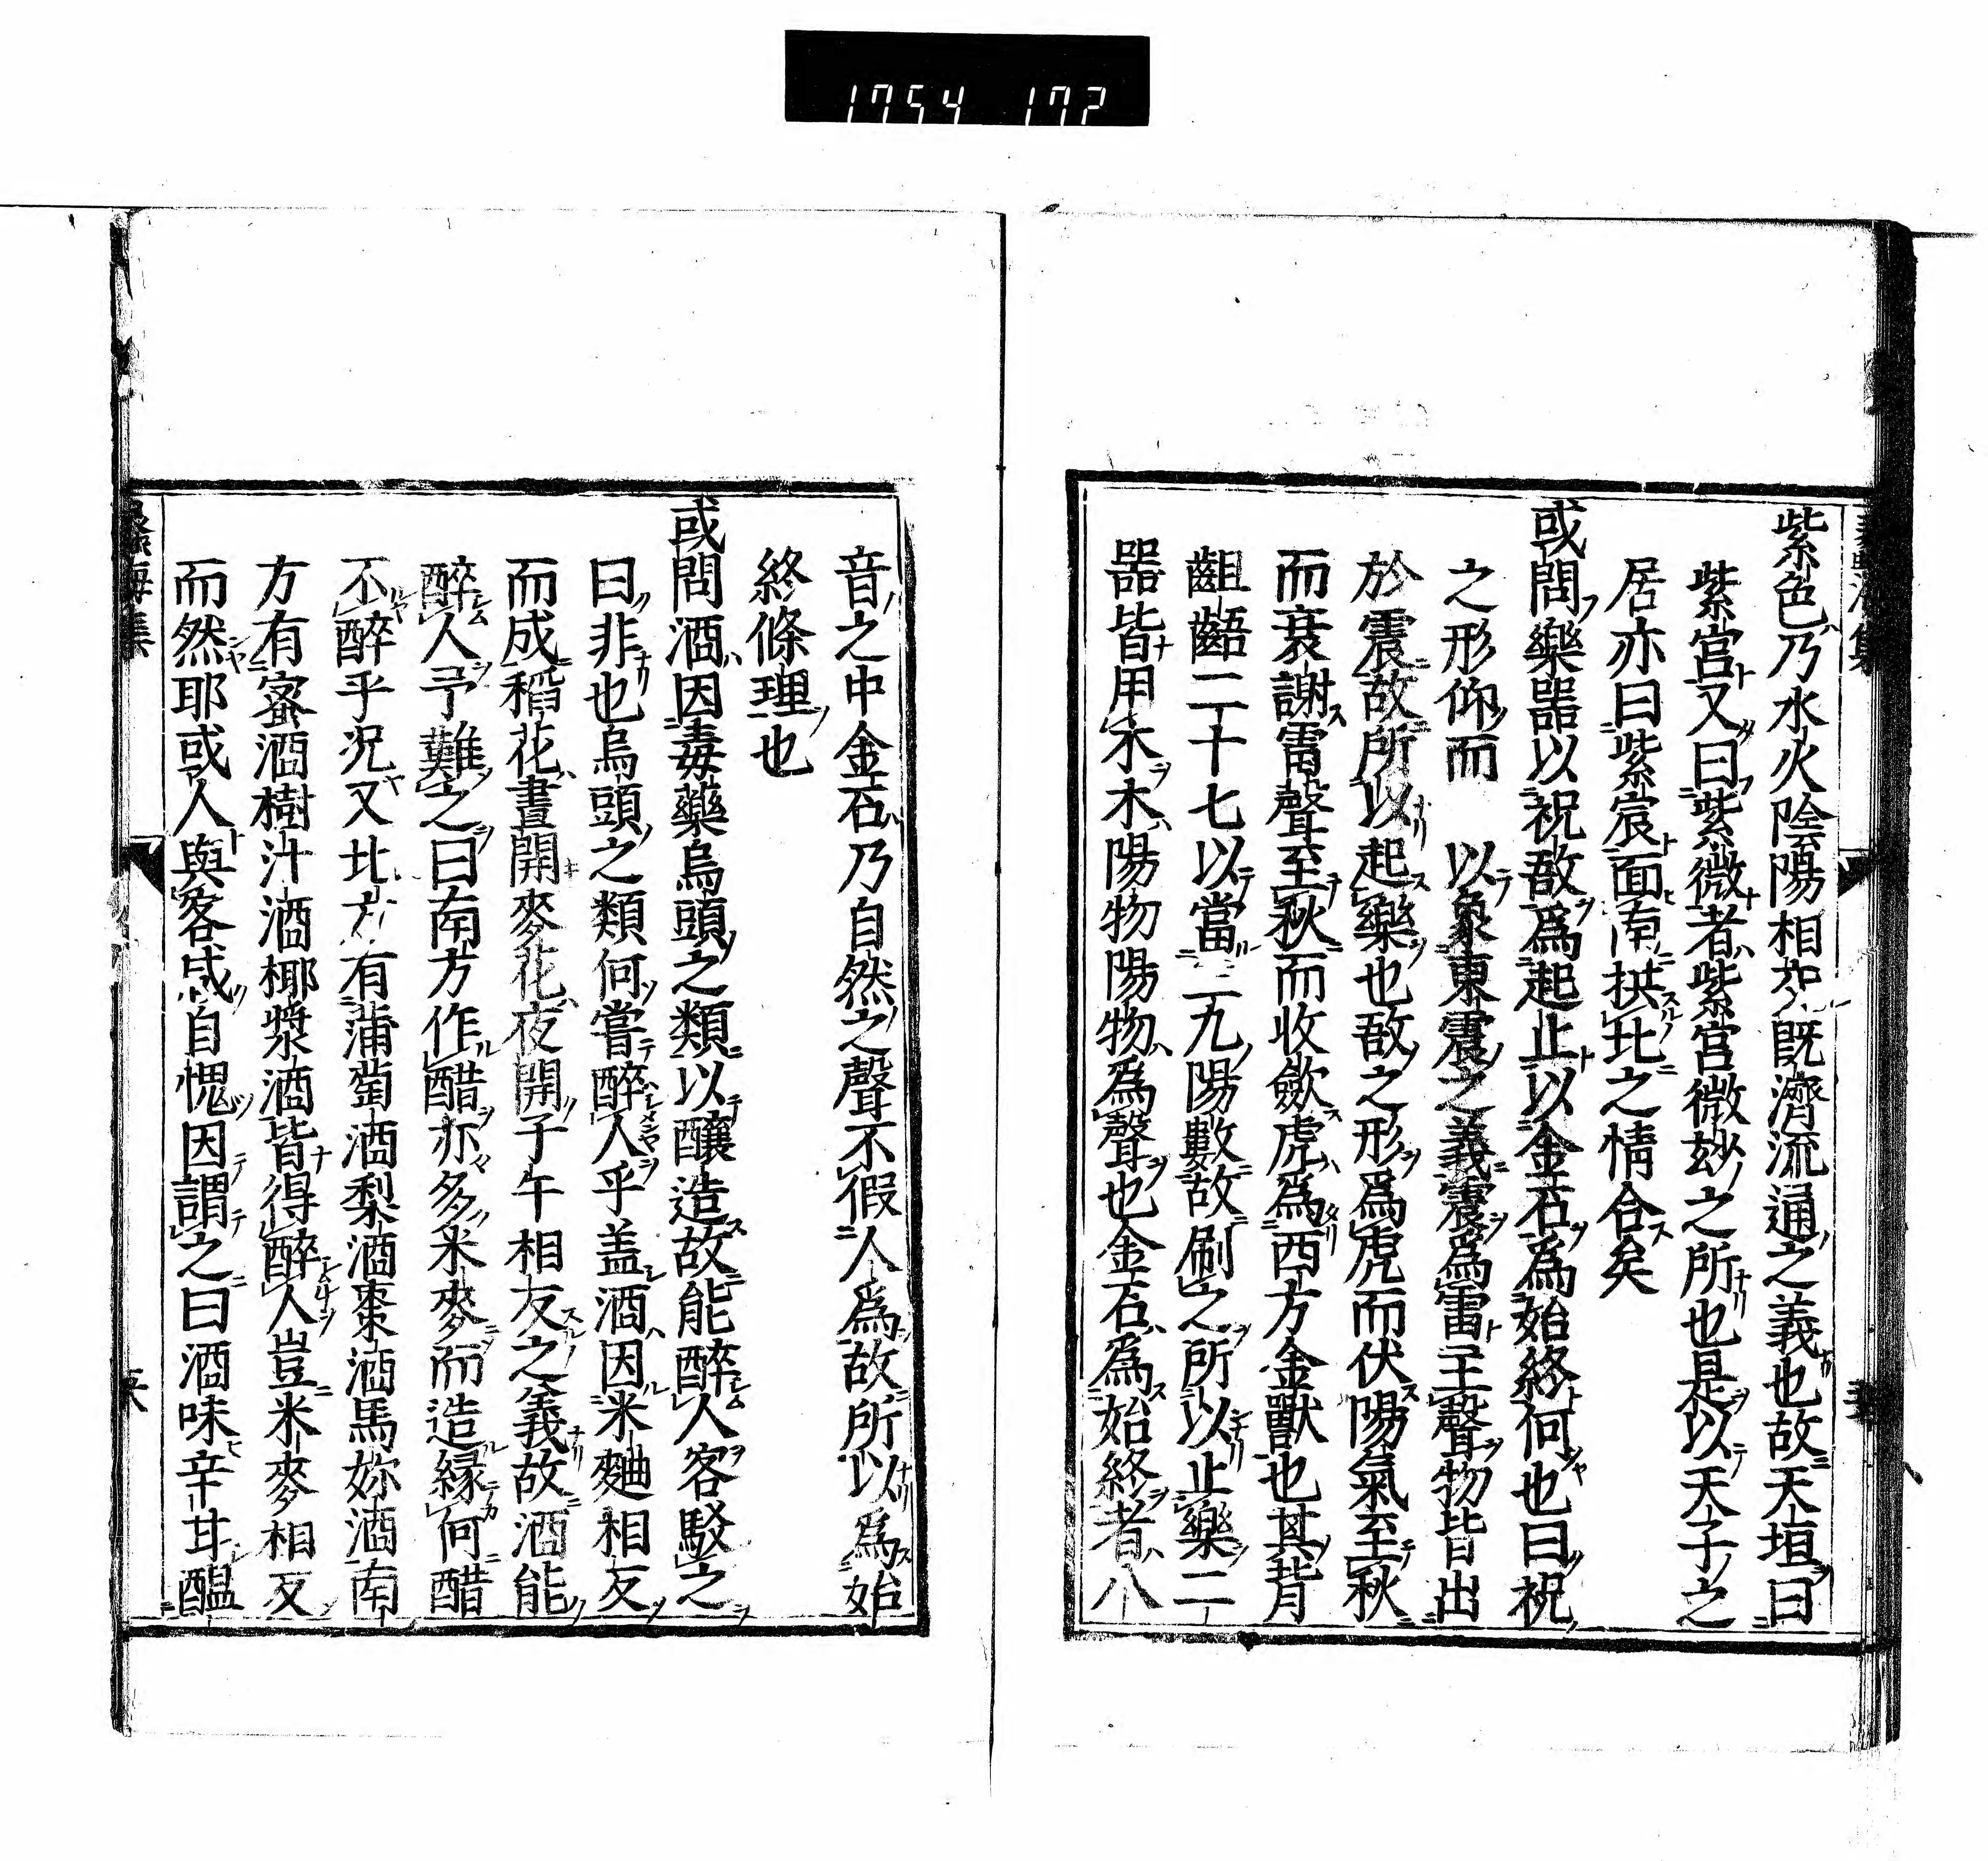 1754 172
紫色乃水火陰陽相交既濟流通之義也故天垣曰
紫宮又曰紫微者紫宮微玅之所也是以天子之
居亦曰紫宸面南拱北之情合矣
或問樂噐以祝敔爲起止以金石爲始終何也曰祝
之形仰而以象東震之義震爲雷主聲物皆出
於震故所以起樂也敔之形爲虎而伏陽氣至秋
而衰謝雷聲至秋而收歛虎爲西方金獸也其背
齟齬二十七以當三九陽數故刷之所以止樂二
噐皆用木木陽物陽物爲聲也金石爲始終者八
音之中金石乃自然之聲不假人爲故所以爲始
終條理也
或問酒因毒藥烏頭之類以釀造故能醉人客駁之
曰非也烏頭之類何嘗醉人乎盖酒因米麯相反
而成稻花晝開麥花夜開子午相反之義故酒能
醉人予難之曰南方作醋亦多米麥而造縁何醋
不醉乎况又北方有蒲萄酒梨酒棗酒馬妳酒南
方有蜜酒樹汁酒椰漿酒皆得醉人豈米麥相反
而然耶或人與客咸自愧因謂之曰酒味辛甘醖